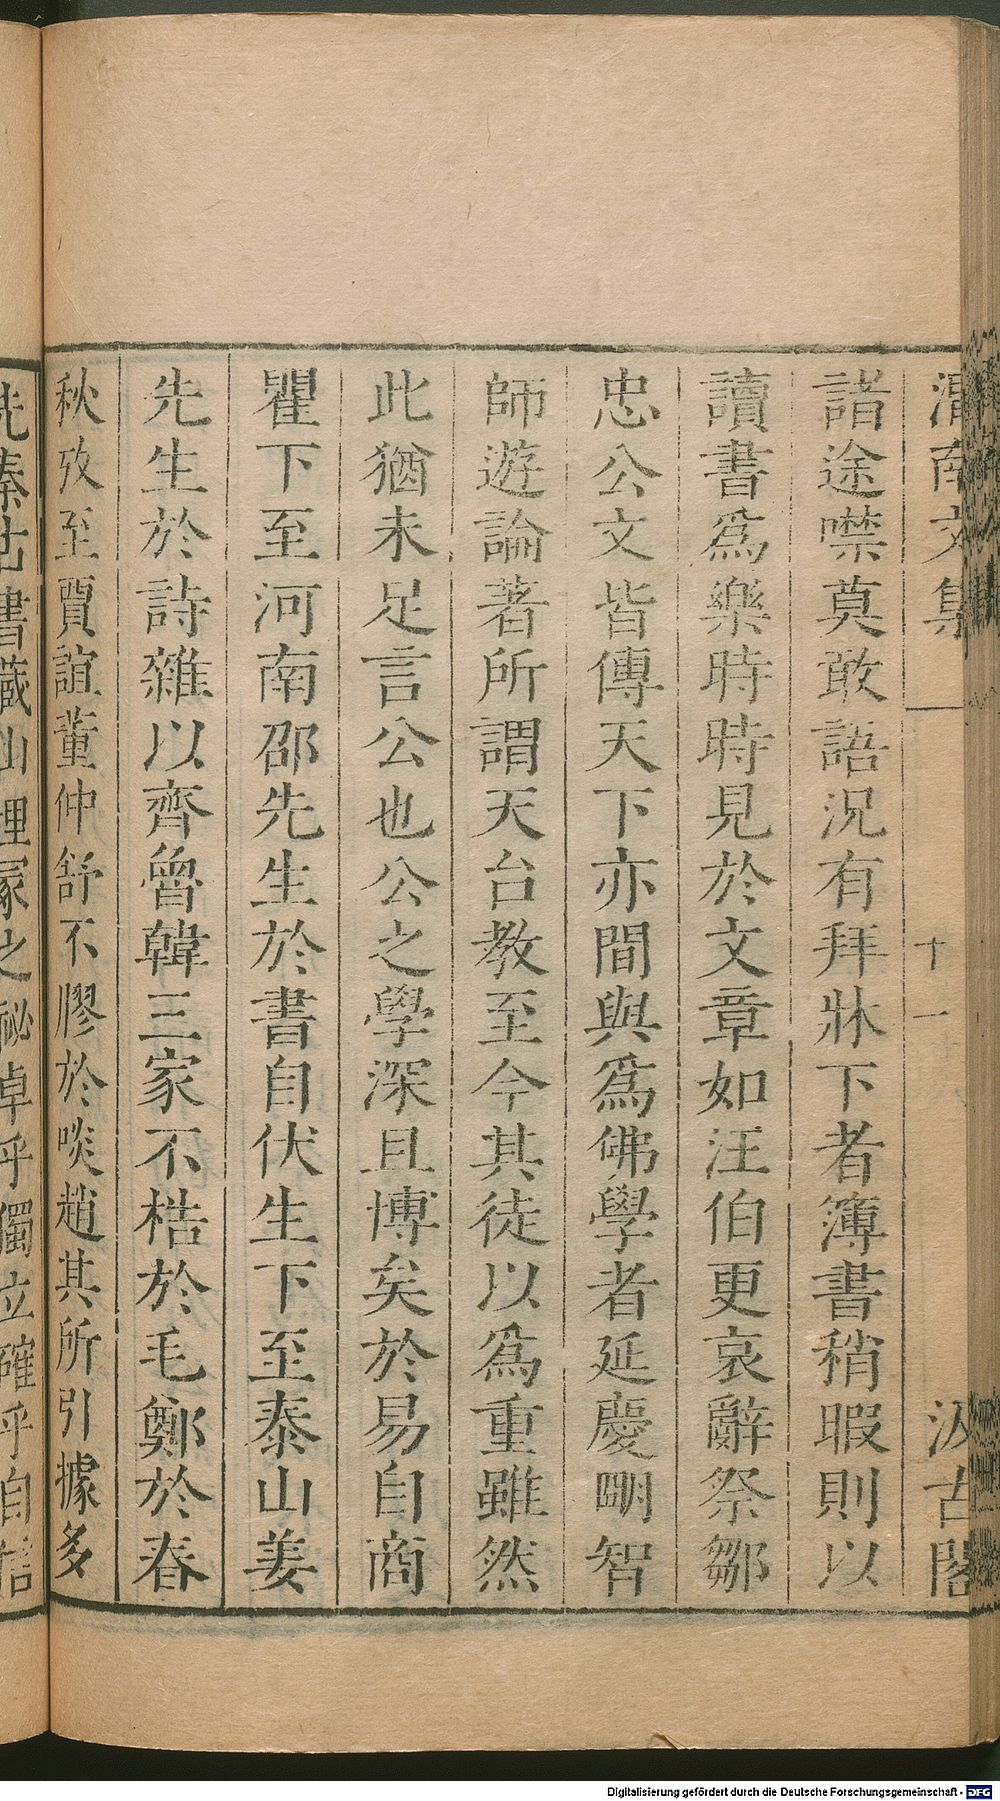 渭南文集 十一 汲古閣
諸途噤莫敢語況有拜牀下者簿書稍暇則以
讀書爲樂時時見於文章如汪伯更哀辭祭鄒
忠公文皆傳天下亦間與爲佛學者延慶明智
師遊論著所謂天台教至今其徒以爲重雖然
此猶未足言公也公之學深且博矣於易自商
瞿下至河南邵先生於書自伏生下至泰山姜
先生於詩雜以齊魯韓三家不梏於毛鄭於春
秋攷至賈誼董仲舒不膠於啖趙其所引據多
先秦古書藏山埋冢之祕卓乎獨立確乎自信
Digitalisierung gefördert durch die Deutsche Forschungsgemeinschaft - DFG